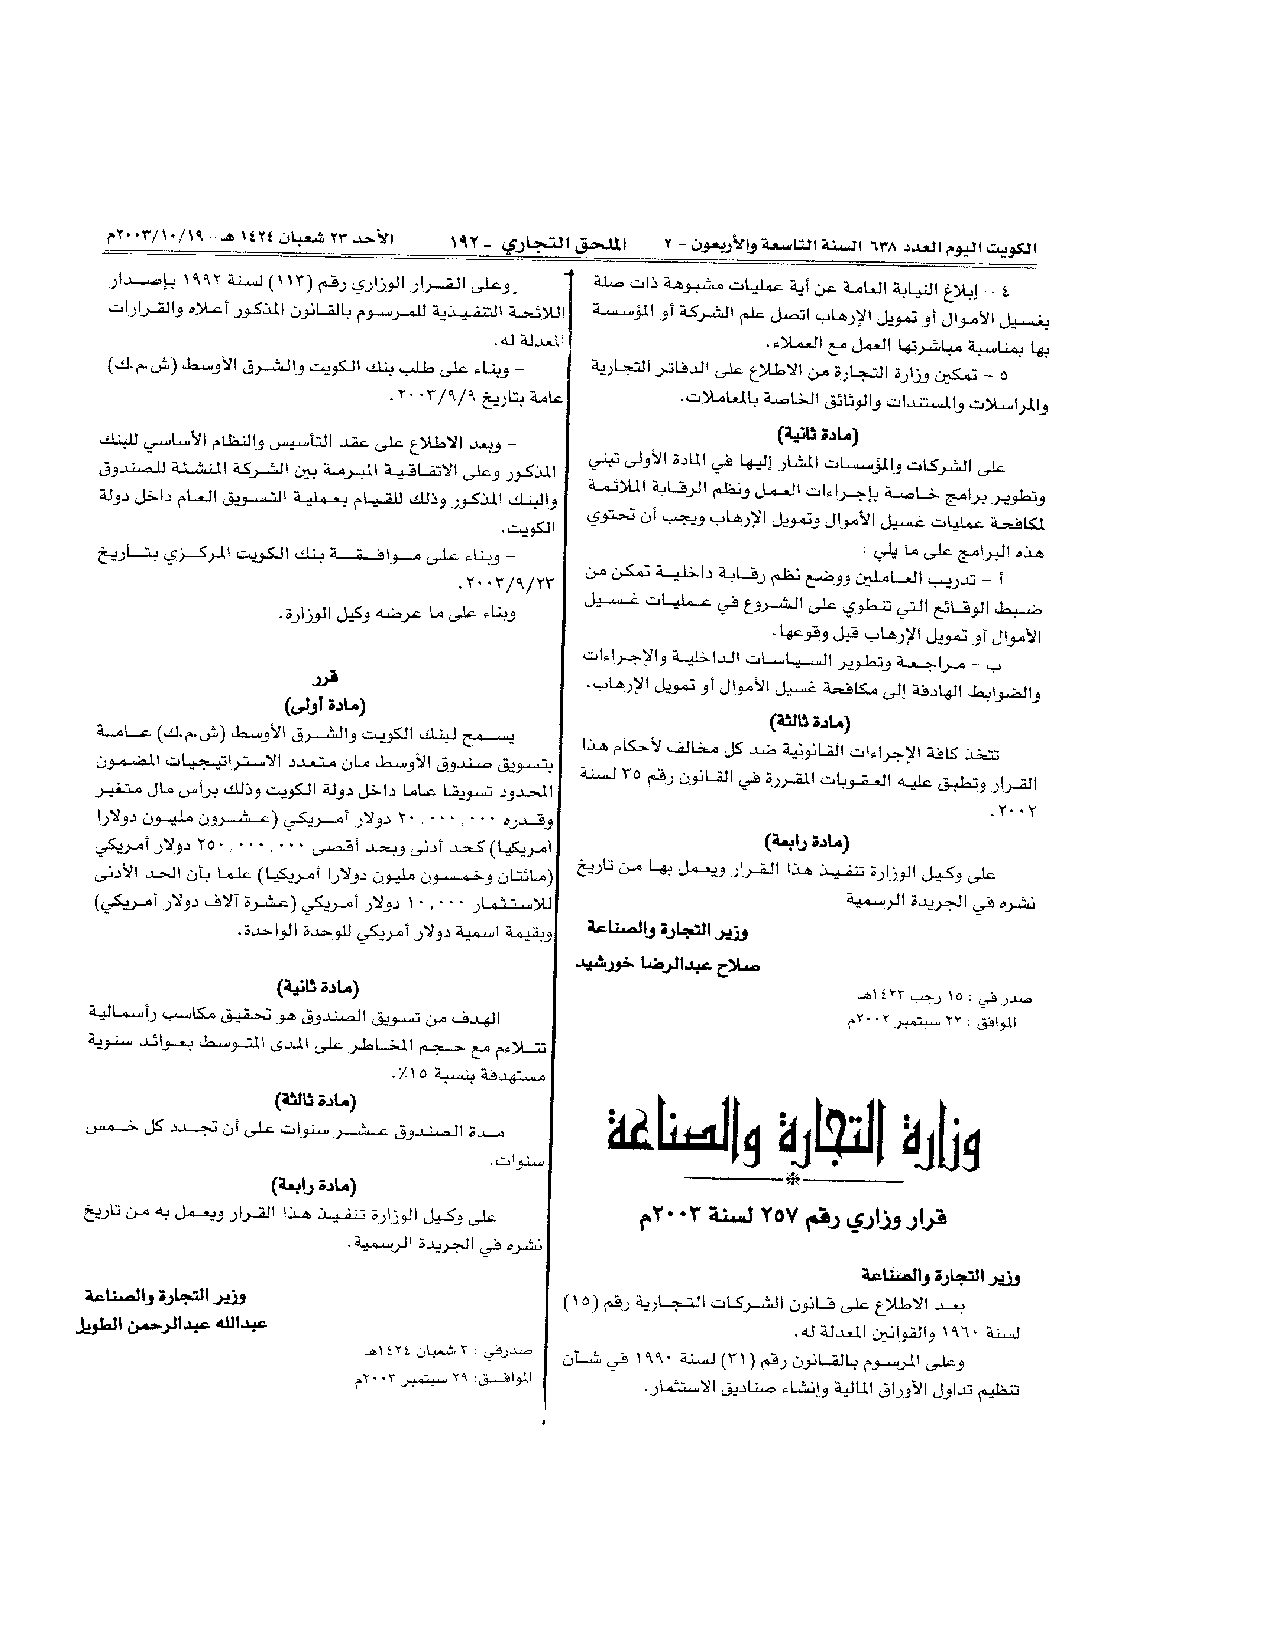 الكويت اليوم العدد ٦٣٨ السنة التاسعة والأربعون - ٢ الملحق التجاري - ١٩٢ الأحد ٢٣ شعبان ١٤٢٤ هـ - ٢٠٠٣/١٠/١٩م
٤ - إبلاغ النيابة العامة عن أية عمليات مشبوهة ذات صلة
بغسيل الأموال أو تمويل الإرهاب اتصل علم الشركة أو المؤسسة
بها بمناسبة مباشرتها العمل مع العملاء.
٥ - تمكين وزارة التجارة من الاطلاع على الدفاتر التجارية
والمراسلات والمستندات والوثائق الخاصة بالمعاملات.
(مادة ثانية)
على الشركات والمؤسسات المشار إليها في المادة الأولى تبني
وتطوير برامج خاصة بإجراءات العمل ونظم الرقابة الملائمة
لمكافحة عمليات غسيل الأموال وتمويل الإرهاب ويجب أن تحتوي
هذه البرامج على ما يلي :
أ - تدريب العاملين ووضع نظم رقابة داخلية تمكن من
ضبط الوقائع التي تنطوي على الشروع في عمليات غسيل
الأموال أو تمويل الإرهاب قبل وقوعها.
ب - مراجعة وتطوير السياسات الداخلية والإجراءات
والضوابط الهادفة إلى مكافحة غسيل الأموال أو تمويل الإرهاب.
(مادة ثالثة)
تتخذ كافة الإجراءات القانونية ضد كل مخالف لأحكام هذا
القرار وتطبق عليه العقوبات المقررة في القانون رقم ٣٥ لسنة
٢٠٠٢.
(مادة رابعة)
على وكيل الوزارة تنفيذ هذا القرار ويعمل بها من تاريخ
نشره في الجريدة الرسمية
وزير التجارة والصناعة
صلاح عبدالرضا خورشيد
صدر في : ١٥ رجب ١٤٢٣هـ
الموافق : ٢٢ سبتمبر ٢٠٠٢م
وزارة التجارة والصناعة
قرار وزاري رقم ٢٥٧ لسنة ٢٠٠٣م
وزير التجارة والصناعة
بعد الاطلاع على قانون الشركات التجارية رقم (١٥)
لسنة ١٩٦٠ والقوانين المعدلة له.
وعلى المرسوم بالقانون رقم (٣١) لسنة ١٩٩٠ في شأن
تنظيم تداول الأوراق المالية وإنشاء صناديق الاستثمار.
وعلى القرار الوزاري رقم (١١٣) لسنة ١٩٩٢ بإصدار
اللائحة التنفيذية للمرسوم بالقانون المذكور أعلاه والقرارات
المعدلة له.
- وبناء على طلب بنك الكويت والشرق الأوسط (ش.م.ك)
عامة بتاريخ ٢٠٠٣/٩/٩.
- وبعد الاطلاع على عقد التأسيس والنظام الأساسي للبنك
المذكور وعلى الاتفاقية المبرمة بين الشركة المنشئة للصندوق
والبنك المذكور وذلك للقيام بعملية التسويق العام داخل دولة
الكويت.
- وبناء على موافقة بنك الكويت المركزي بتاريخ
٢٠٠٣/٩/٢٣.
وبناء على ما عرضه وكيل الوزارة.
قرر
(مادة أولى)
يسمح لبنك الكويت والشرق الأوسط (ش.م.ك) عامة
بتسويق صندوق الأوسط مان متعدد الاستراتيجيات المضمون
المحدود تسويقا عاما داخل دولة الكويت وذلك برأس مال متغير
وقدره ٢٠,٠٠٠,٠٠٠ دولار أمريكي (عشرون مليون دولارا
أمريكيا) كحد أدنى وبحد أقصى ٢٥٠,٠٠٠,٠٠٠ دولار أمريكي
(مائتان وخمسون مليون دولارا أمريكيا) علما بأن الحد الأدنى
للاستثمار ١٠,٠٠٠ دولار أمريكي (عشرة آلاف دولار أمريكي)
وبقيمة اسمية دولار أمريكي للوحدة الواحدة.
(مادة ثانية)
الهدف من تسويق الصندوق هو تحقيق مكاسب رأسمالية
تتلاءم مع حجم المخاطر على المدى المتوسط بعوائد سنوية
مستهدفة بنسبة ١٥٪.
(مادة ثالثة)
مدة الصندوق عشر سنوات على أن تجدد كل خمس
سنوات.
(مادة رابعة)
على وكيل الوزارة تنفيذ هذا القرار ويعمل به من تاريخ
نشره في الجريدة الرسمية.
وزير التجارة والصناعة
عبدالله عبدالرحمن الطويل
صدر في : ٣ شعبان ١٤٢٤هـ
الموافق: ٢٩ سبتمبر ٢٠٠٣م